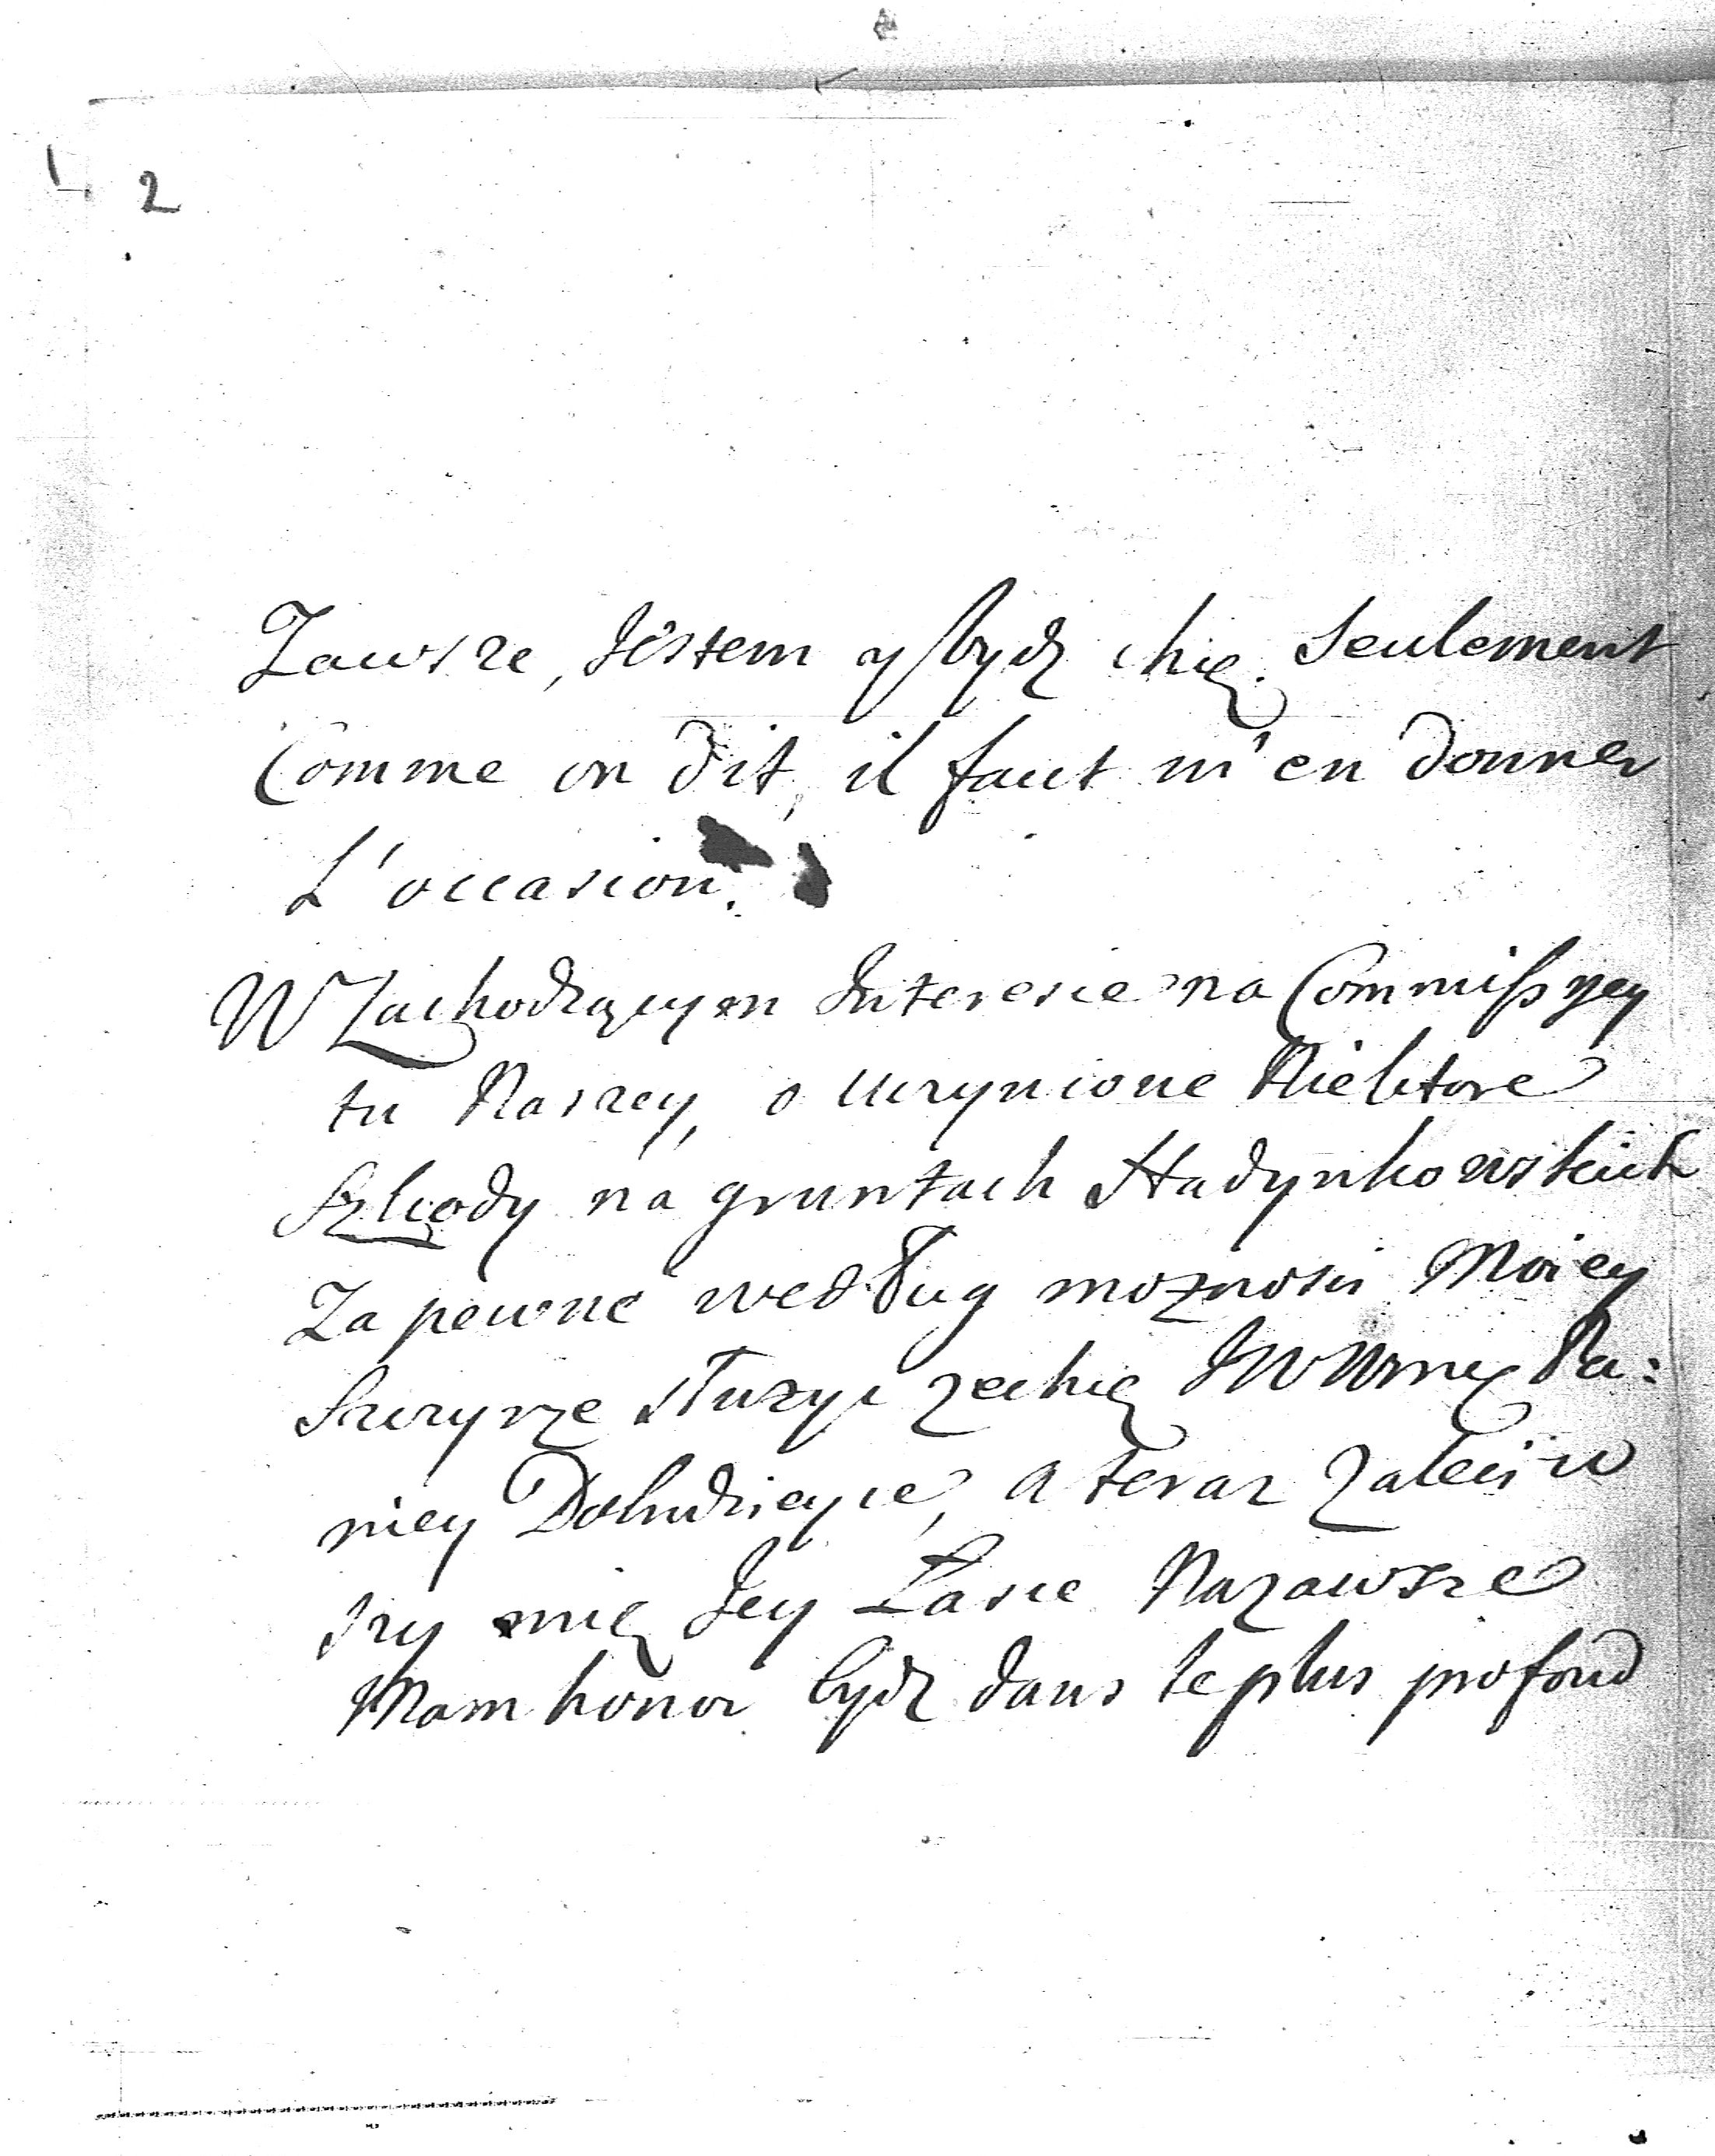 2
Zawsze, Jestem y bydz chię. Seulement
Comme on dit, il faut m'en donner
L'occasion.
W Zachodzącym Interesie na Commissyey
tu Naszey, o uczynione Niektore
Szkody na gruntach Hadynkowskich
Zapewne według moznosci Moiey
Szczyrze służyc zechcę JWWmey Pa:
niey Dobrudzieyce, a teraz Zaleciw
szy mię Jey Łasce Nazawsze
Mam honor bydz dans le plus profond